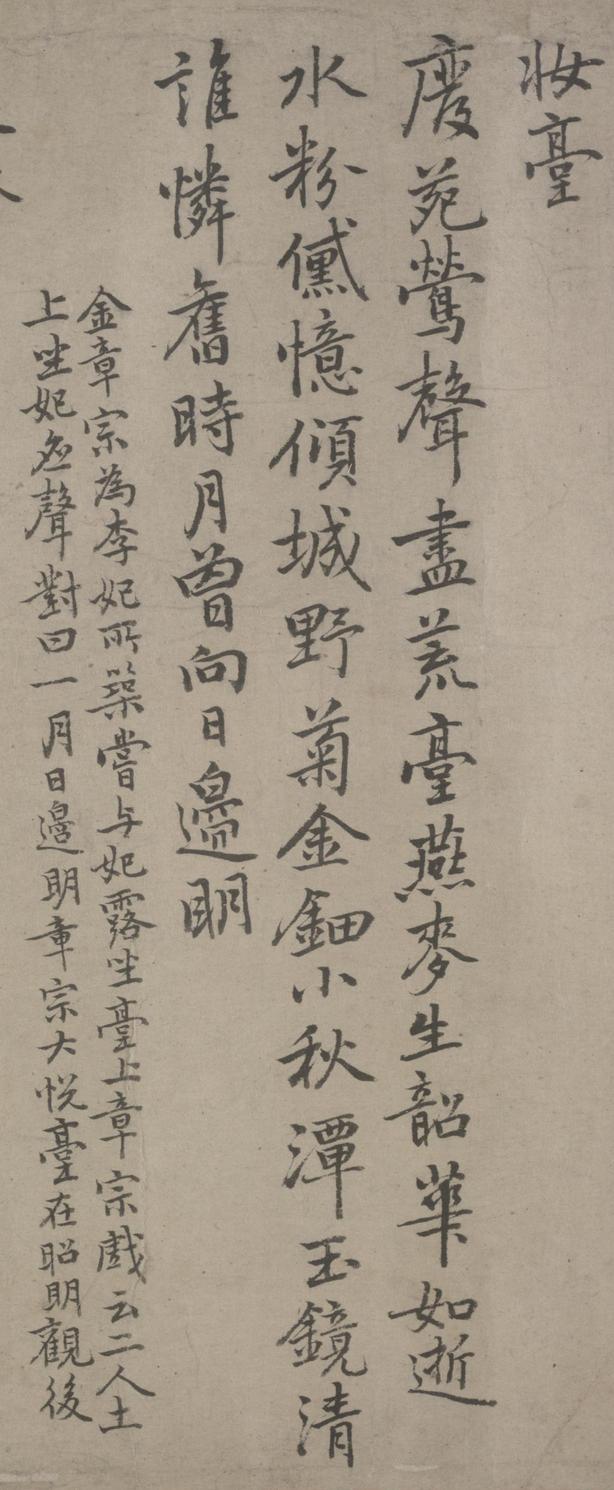 妝臺
廢苑鶯聲盡荒臺燕麥生韶華如逝
水粉黛憶傾城野菊金鈿小秋潭玉鏡清
誰憐舊時月曾向日邊明
金章宗為李妃所築嘗与妃露坐臺上章宗戲云二人土
上坐妃應聲對曰一月日邊明章宗大悅臺在昭明觀後